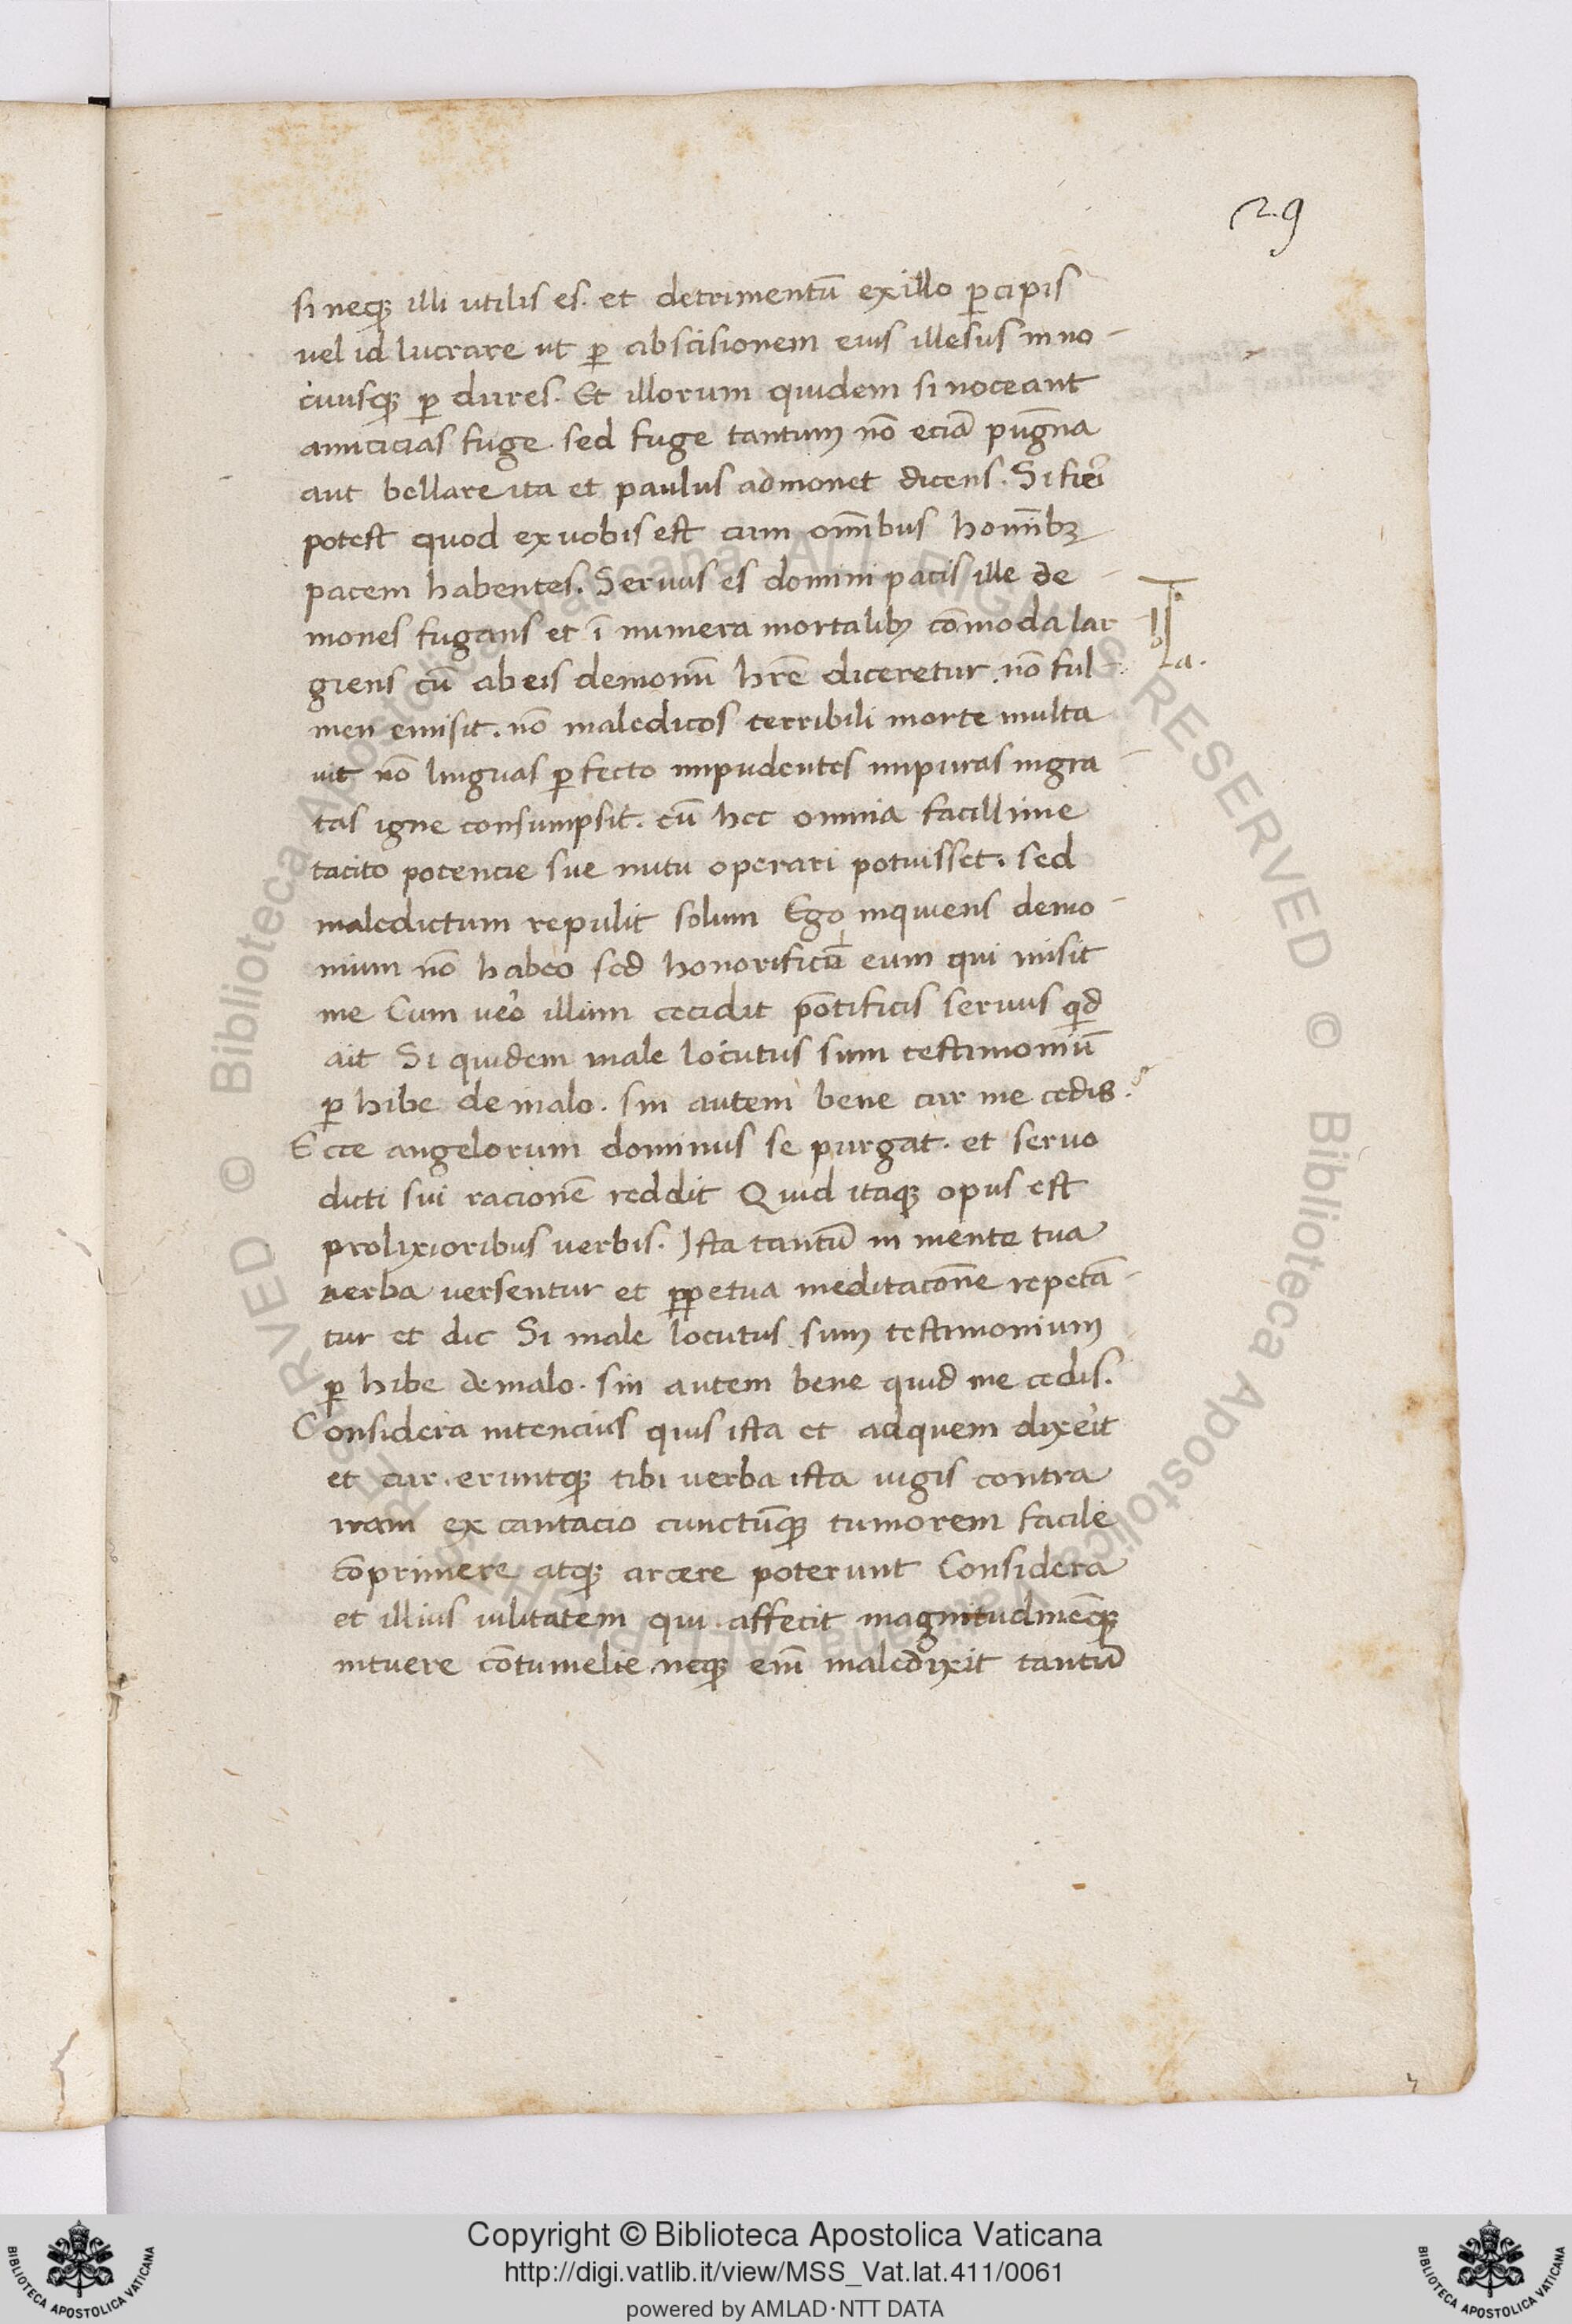 29
si neqꝫ illi utilis es. et detrimentū ex illo ꝑcipis
uel id lucrare ut ꝑ abscisionem eius illesus inno-
cuusqꝫ ꝑ dures. Et illorum quidem si noceant
amicicias fuge. sed fuge tantum nō eciā pūgna
aut bellare ita et paulus admonet dicens. Si fieri
potest quod ex uobis est cum om̄ibus homībꝫ
pacem habentes. Seruus es domini pacis ille de-
mones fugans et ī numera mortalibꝫ cōmoda lar-
giens cū ab eis demoniū hr̄e diceretur. nō ful-
men emisit. nō maledicos terribili morte multa
uit nō linguas ꝑfecto impudentes impuras ingra-
tas igne consumpsit. cū hec omnia facillime
tacito potencie sue nutu operari potuisset. sed
maledictum repulit solum Ego inquiens demo-
nium nō habeo sed honorifico eum qui misit
me Cum uero illum cecidit pōtificis seruus qid
ait Si quidem male locutus sum testimoniū
ꝑ hibe de malo. sin autem bene cur me cedis.
Ecce angelorum dominus se purgat. et seruo
dicti sui racionē reddit Quid itaqꝫ opus est
prolixioribus uerbis. Ista tantū in mente tua
uerba uersentur et ꝑpetua meditacōne repetā-
tur et dic Si male locutus sum testimonium
ꝑ hibe de malo. sin autem bene quid me cedis.
Considera intencius quis ista et ad quem dixerit
et cur. eruntqꝫ tibi uerba ista iugis contra
iram ex cantacio cunctūqꝫ tumorem facile
cōprimere atqꝫ arcere poterunt Considera
et illius uilitatem qui affecit magnitudinēqꝫ
intuere cōtumelie. neqꝫ enī maledixit tantū
Copyright © Biblioteca Apostolica Vaticana
http://digi.vatlib.it/view/MSS_Vat.lat.411/0061
powered by AMLAD·NTT DATA